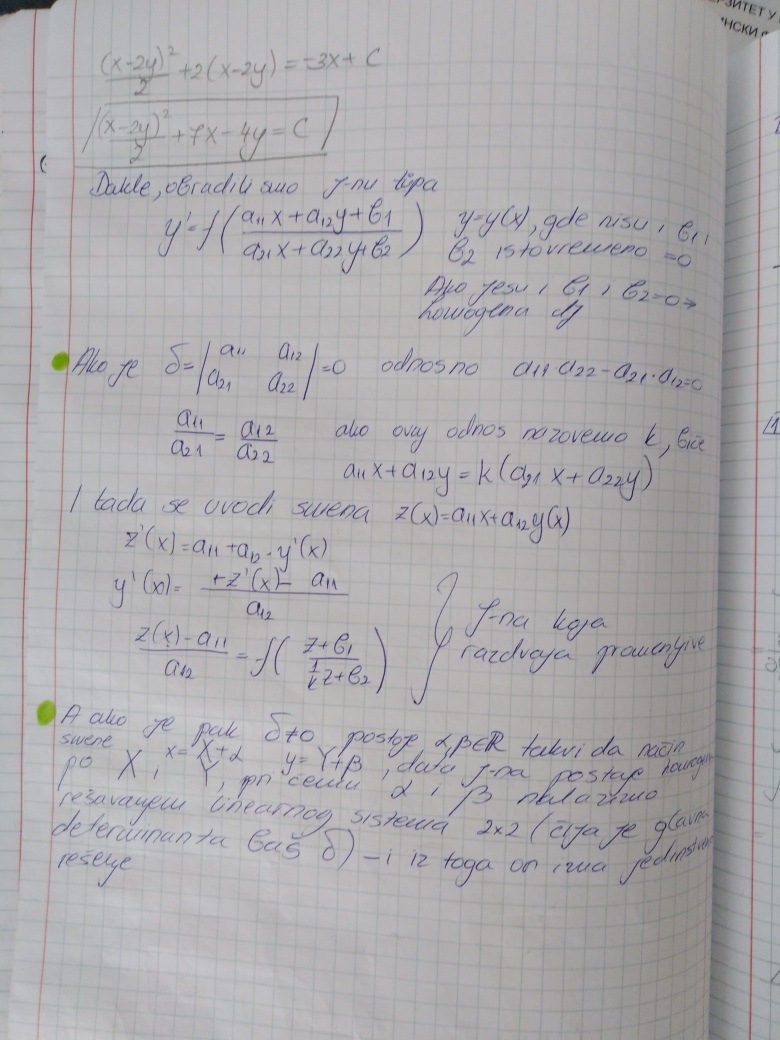 РЗИТЕТ У
НСКИ
(x-2y)²/2 + 2(x-2y) = -3x + C
(x-2y)²/2 + 7x - 4y = C
Dakle, obradili smo j-nu tipa
y' = f((a₁₁x + a₁₂y + b₁)/(a₂₁x + a₂₂y + b₂)) y = y(x), gde nisu i b₁ i
b₂ istovremeno = 0
Ako jesu i b₁ i b₂ = 0 →
homogena dj
Ako je δ = |a₁₁ a₁₂; a₂₁ a₂₂| = 0 odnosno a₁₁·a₂₂ - a₂₁·a₁₂ = 0
a₁₁/a₂₁ = a₁₂/a₂₂ ako ovaj odnos nazovemo k, biće
a₁₁x + a₁₂y = k(a₂₁x + a₂₂y)
I tada se uvodi smena z(x) = a₁₁x + a₁₂y(x)
z'(x) = a₁₁ + a₁₂·y'(x)
y'(x) = (+z'(x) - a₁₁)/a₁₂
(z(x) - a₁₁)/a₁₂ = f((z + b₁)/(1/k z + b₂)) } J-na koja
razdvaja promenljive
A ako je pak δ ≠ 0 postoje α, β ∈ R takvi da način
smene x = X + α y = Y + β, data j-na postaje
po X i Y, pri čemu α i β nalazimo
rešavanjem linearnog sistema 2x2 (čija je glavna
determinanta baš δ) - i iz toga on ima
rešenje